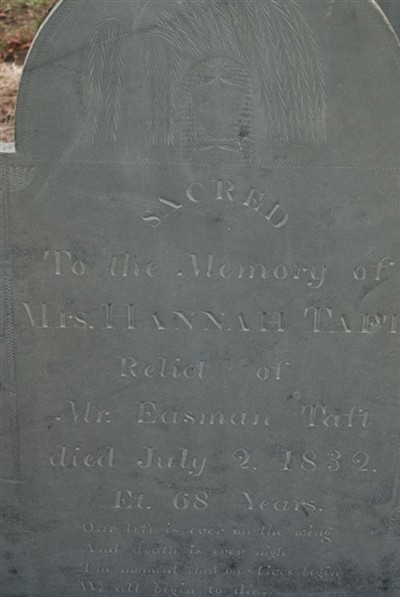 SACRED
To the Memory of
Mrs. HANNAH TAFT
Relict of
Mr. Easman Taft
died July 2. 1832.
Et. 68 Years.
Our life is ever on the wing
And death is ever nigh
The moment that our lives begin
We all begin to die.